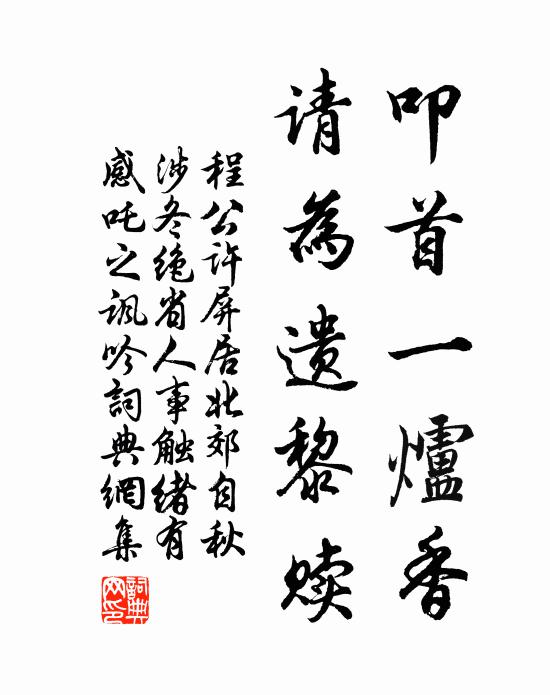 叩首一爐香
请為遗黎赎
程公许屏居北郊自秋
涉冬绝省人事触绪有
感吒之讽吟詞典網集
詞典
网印